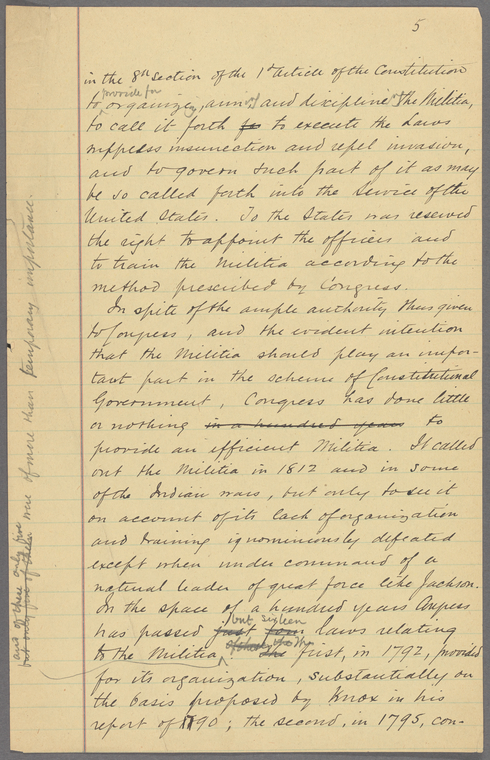 5
in the 8th Section of the 1st Article of the Constitution
provide for
to organizing, arming and disciplining the Militia,
to call it forth to execute the Laws
suppress insurrection and repel invasion,
and to govern such part of it as may
be so called forth into the Service of the
United States. To the States was reserved
the right to appoint the officers and
to train the Militia according to the
method prescribed by Congress.
In spite of the ample authority thus given
to Congress, and the evident intention
that the Militia should play an impor-
tant part in the scheme of Constitutional
Government, Congress has done little
or nothing in a hundred years to
provide an efficient Militia. It called
out the Militia in 1812 and in some
of the Indian wars, but only to see it
on account of its lack of organization
and training ignominiously defeated
except when under command of a
natural leader of great force like Jackson.
In the space of a hundred years Congress
but sixteen
has passed just four laws relating
to the Militia. The first, in 1792, provided
for its organization, substantially on
the basis proposed by Knox in his
report of 1790; the second, in 1795, con-
and of these only five were of more than temporary importance.
but only five of them